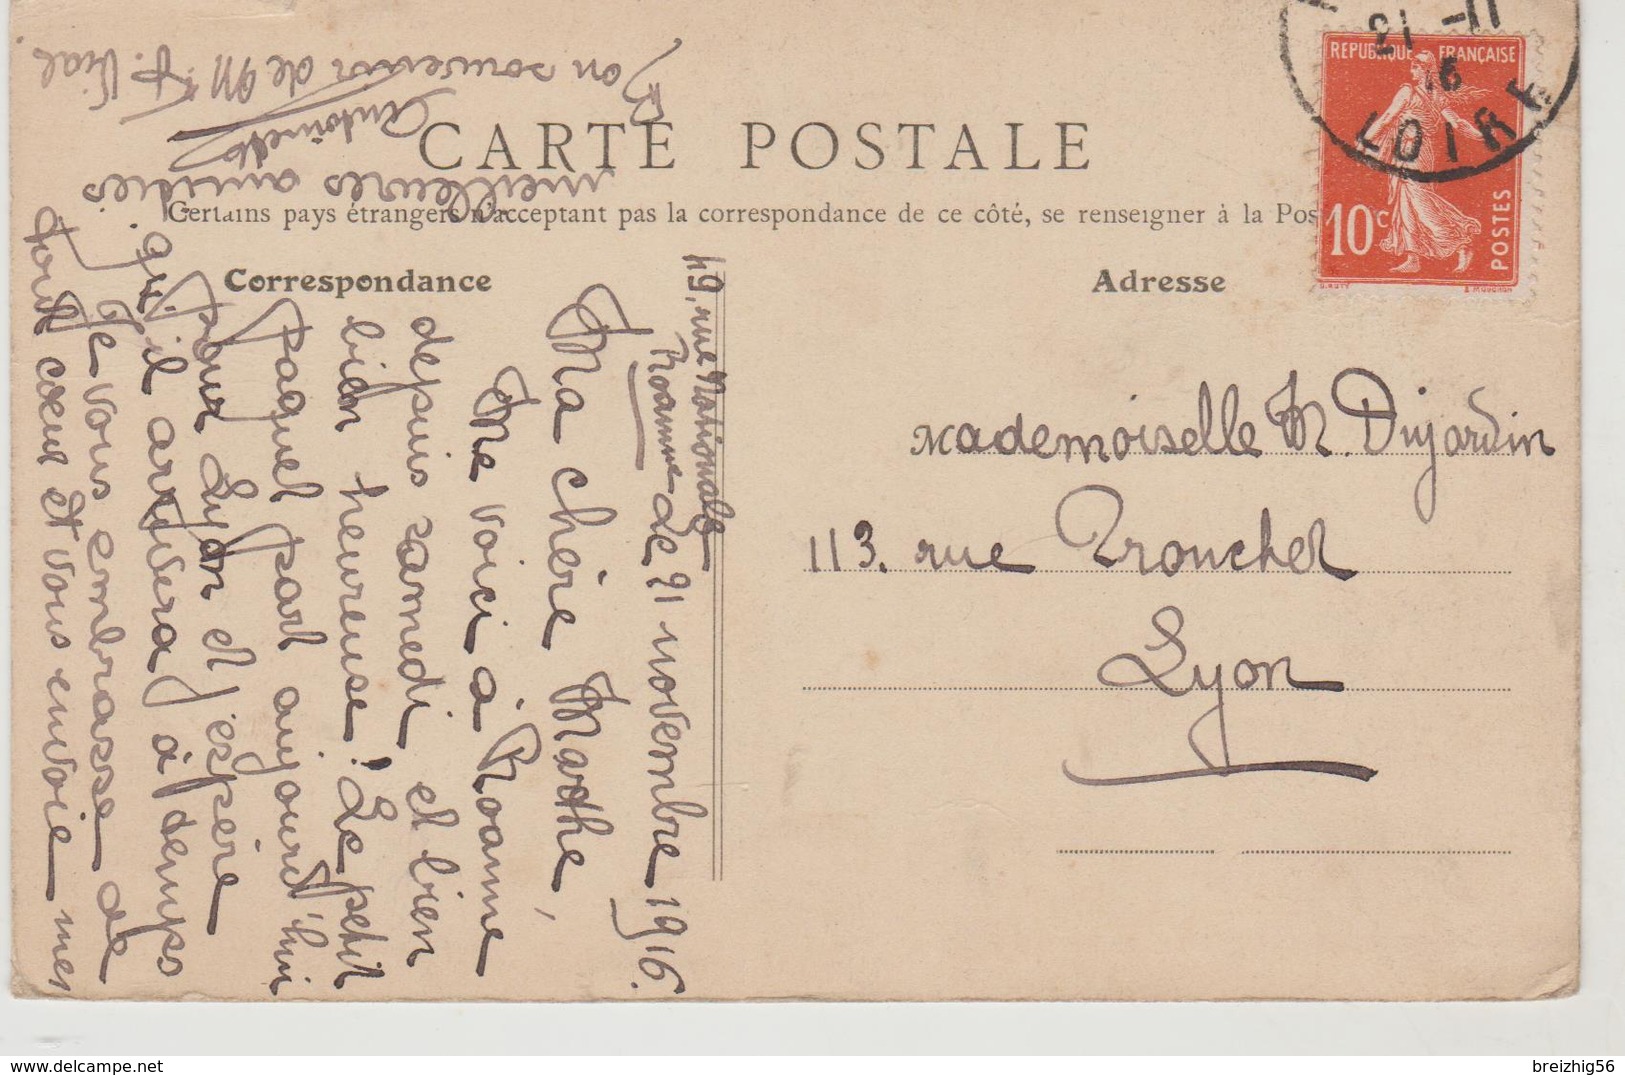 CARTE POSTALE
Certains pays étrangers n'acceptent pas la correspondance de ce côté, se renseigner à la Pos
Correspondance
Adresse
RÉPUBLIQUE FRANÇAISE
10c
POSTES
LOIRE
49, rue Nationale
Roanne Le 21 novembre 1916.
Ma chère Marthe,
Me voici à Roanne
depuis samedi et bien
bien heureuse! Le petit
paquet part aujourd'hui
pour Lyon et j'espère
qu'il arrivera à temps.
Je vous embrasse de
tout coeur et vous envoie mes
meilleures amitiés
Antoinette
Bon souvenir de M F. Vial
Mademoiselle M. Dujardin
113. rue Tronchet
Lyon
breizhig56